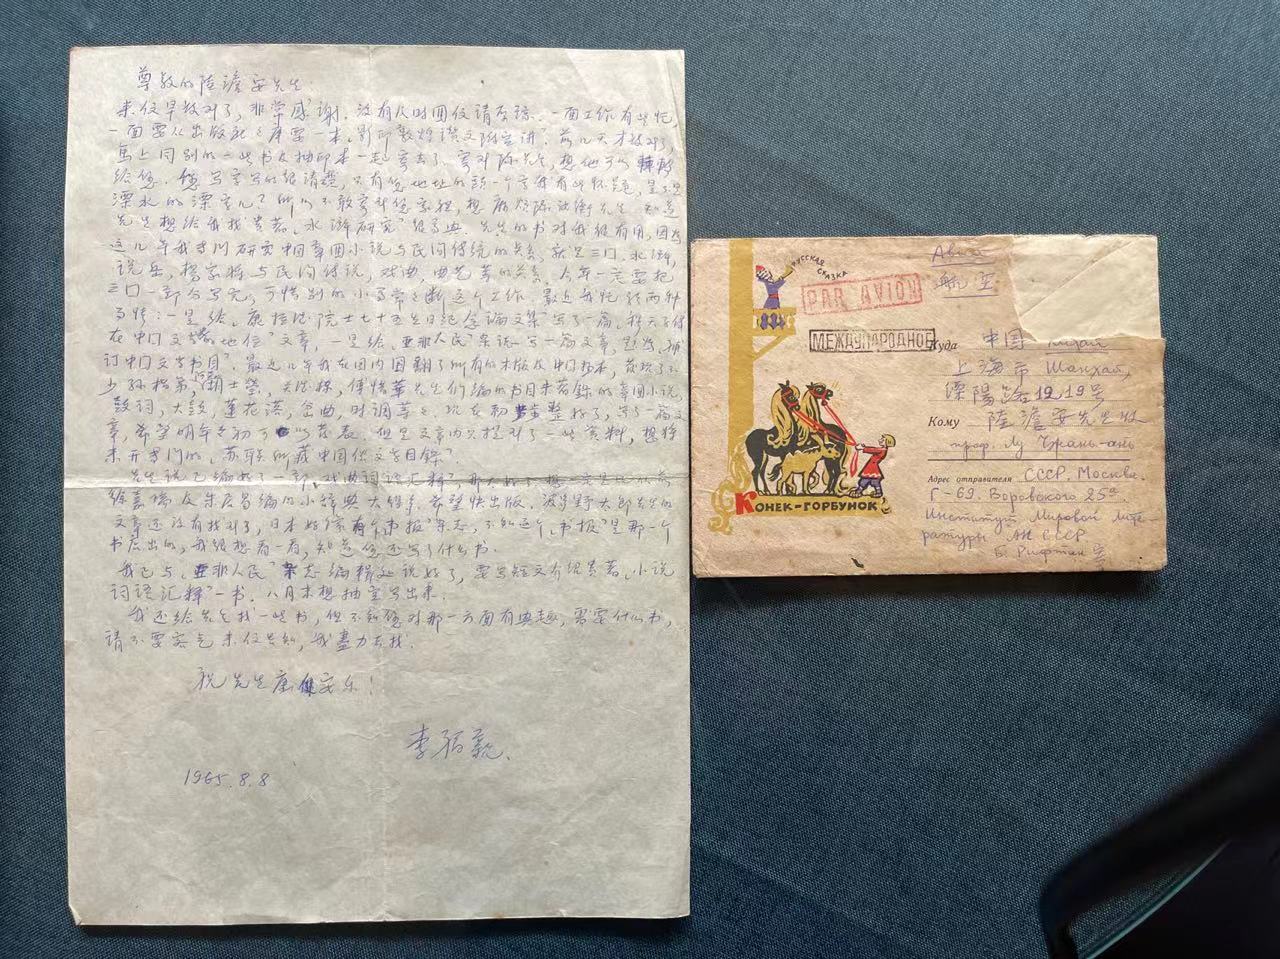 尊敬的陸澹安先生:
来信早敍到了,非常感谢.没有及时回信请原諒.一面工作有些忙,
一面要从出版社之庫要一本“影印敦煌讚文附宣讲”.前几天才
馬上同别的一些书及抽印本一起寄去了.寄对陈先生,想他可以轉
给您.您写字写的很清楚,只有您地址的頭一个字我有些怀疑,是不是
溧水的溧字儿?所以不敢寄到您家裡,想麻烦陈
先生想给我找貴著“水滸研究”很高兴.先生的书对我很有用,因为
这几年我专门研究中国章回小说与民间传统的关系,就是三门.水滸,
说岳,楊家將与民间传说,戏曲,曲艺等的关系.今年一定要把
三门一部分写完,可惜别的小事常之断这个工作.最近我忙於两种
事情:一是给“康拉德院士七十五生日纪念論文集”写了一篇
在中门文学的地位”文章,一是给“亚非人民”杂志写一篇文章,题为“補
订中门文学书目”.最近几年我在国内图翻了所有的木版及中门书本,發现了不
少孫楷弟,胡士瑩,关德棟,傅惜華先生们编的书目未著錄的章回小说,
鼓词,大鼓,莲花落,岔曲,时调等之.现在初步整好了,写了一篇文
章,希望明年之初可以發表.但是文章内只提到了一些资料,想将
来开专门的“苏联所藏中国俗文学目錄”.
先生说已编好了一部“戏曲词语汇释”,那太好了.想一定是比以前
徐嘉瑞及朱居易编的小辞典大得多.希望快出版.波多野太郎先生的
文章还没有找到了,日本好像有个“书报”杂志,不知这个“书报”是那一个
书店出的,我很想看一看,知道您还写了什么书.
我已与“亚非人民”杂志编辑处说好了,要写短文介绍貴著“小说
词语汇释”一书.八月末想抽空写出来.
我还给先生找一些书,但不知您对那一方面有興趣,需要什么书,
请不要客气来信告知,我盡力去找.
祝先生康健安乐!
李福親.
1965.8.8
РУССКАЯ СКАЗКА
Авиа
航空
PAR AVION
МЕЖДУНАРОДНОЕ
Куда
中國 Китай
上海市 Шанхай,
溧陽路1219号
Кому 陸澹安先生收
проф. Лу Чжань-ань
Адрес отправителя СССР. Москва.
Г-69. Воровского 25а.
Институт Мировой лите-
ратуры АН СССР
Б. Рифтин
КОНЕК-ГОРБУНОК